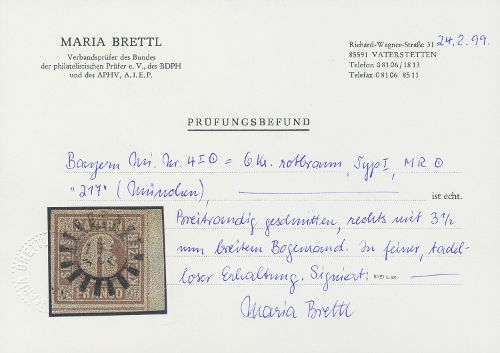 MARIA BRETTL
Verbandsprüfer des Bundes
der philatelistischen Prüfer e. V., des BDPH
und des APHV, A.I.E.P.
Richard-Wagner-Straße 31
85591 VATERSTETTEN
Telefon 0 81 06 / 18 13
Telefax 0 81 06 85 11
24.2.99.
PRÜFUNGSBEFUND
Bayern Mi. Nr. 4 I ① = 6 Kr. rotbraun, Typ I, MR ⊙
"217" (München), ist echt.
Breitrandig geschnitten, rechts mit 3½
mm breitem Bogenrand. In feiner, tadel-
loser Erhaltung. Signiert:
Maria Brettl
FRANCO
MARIA BRETTL